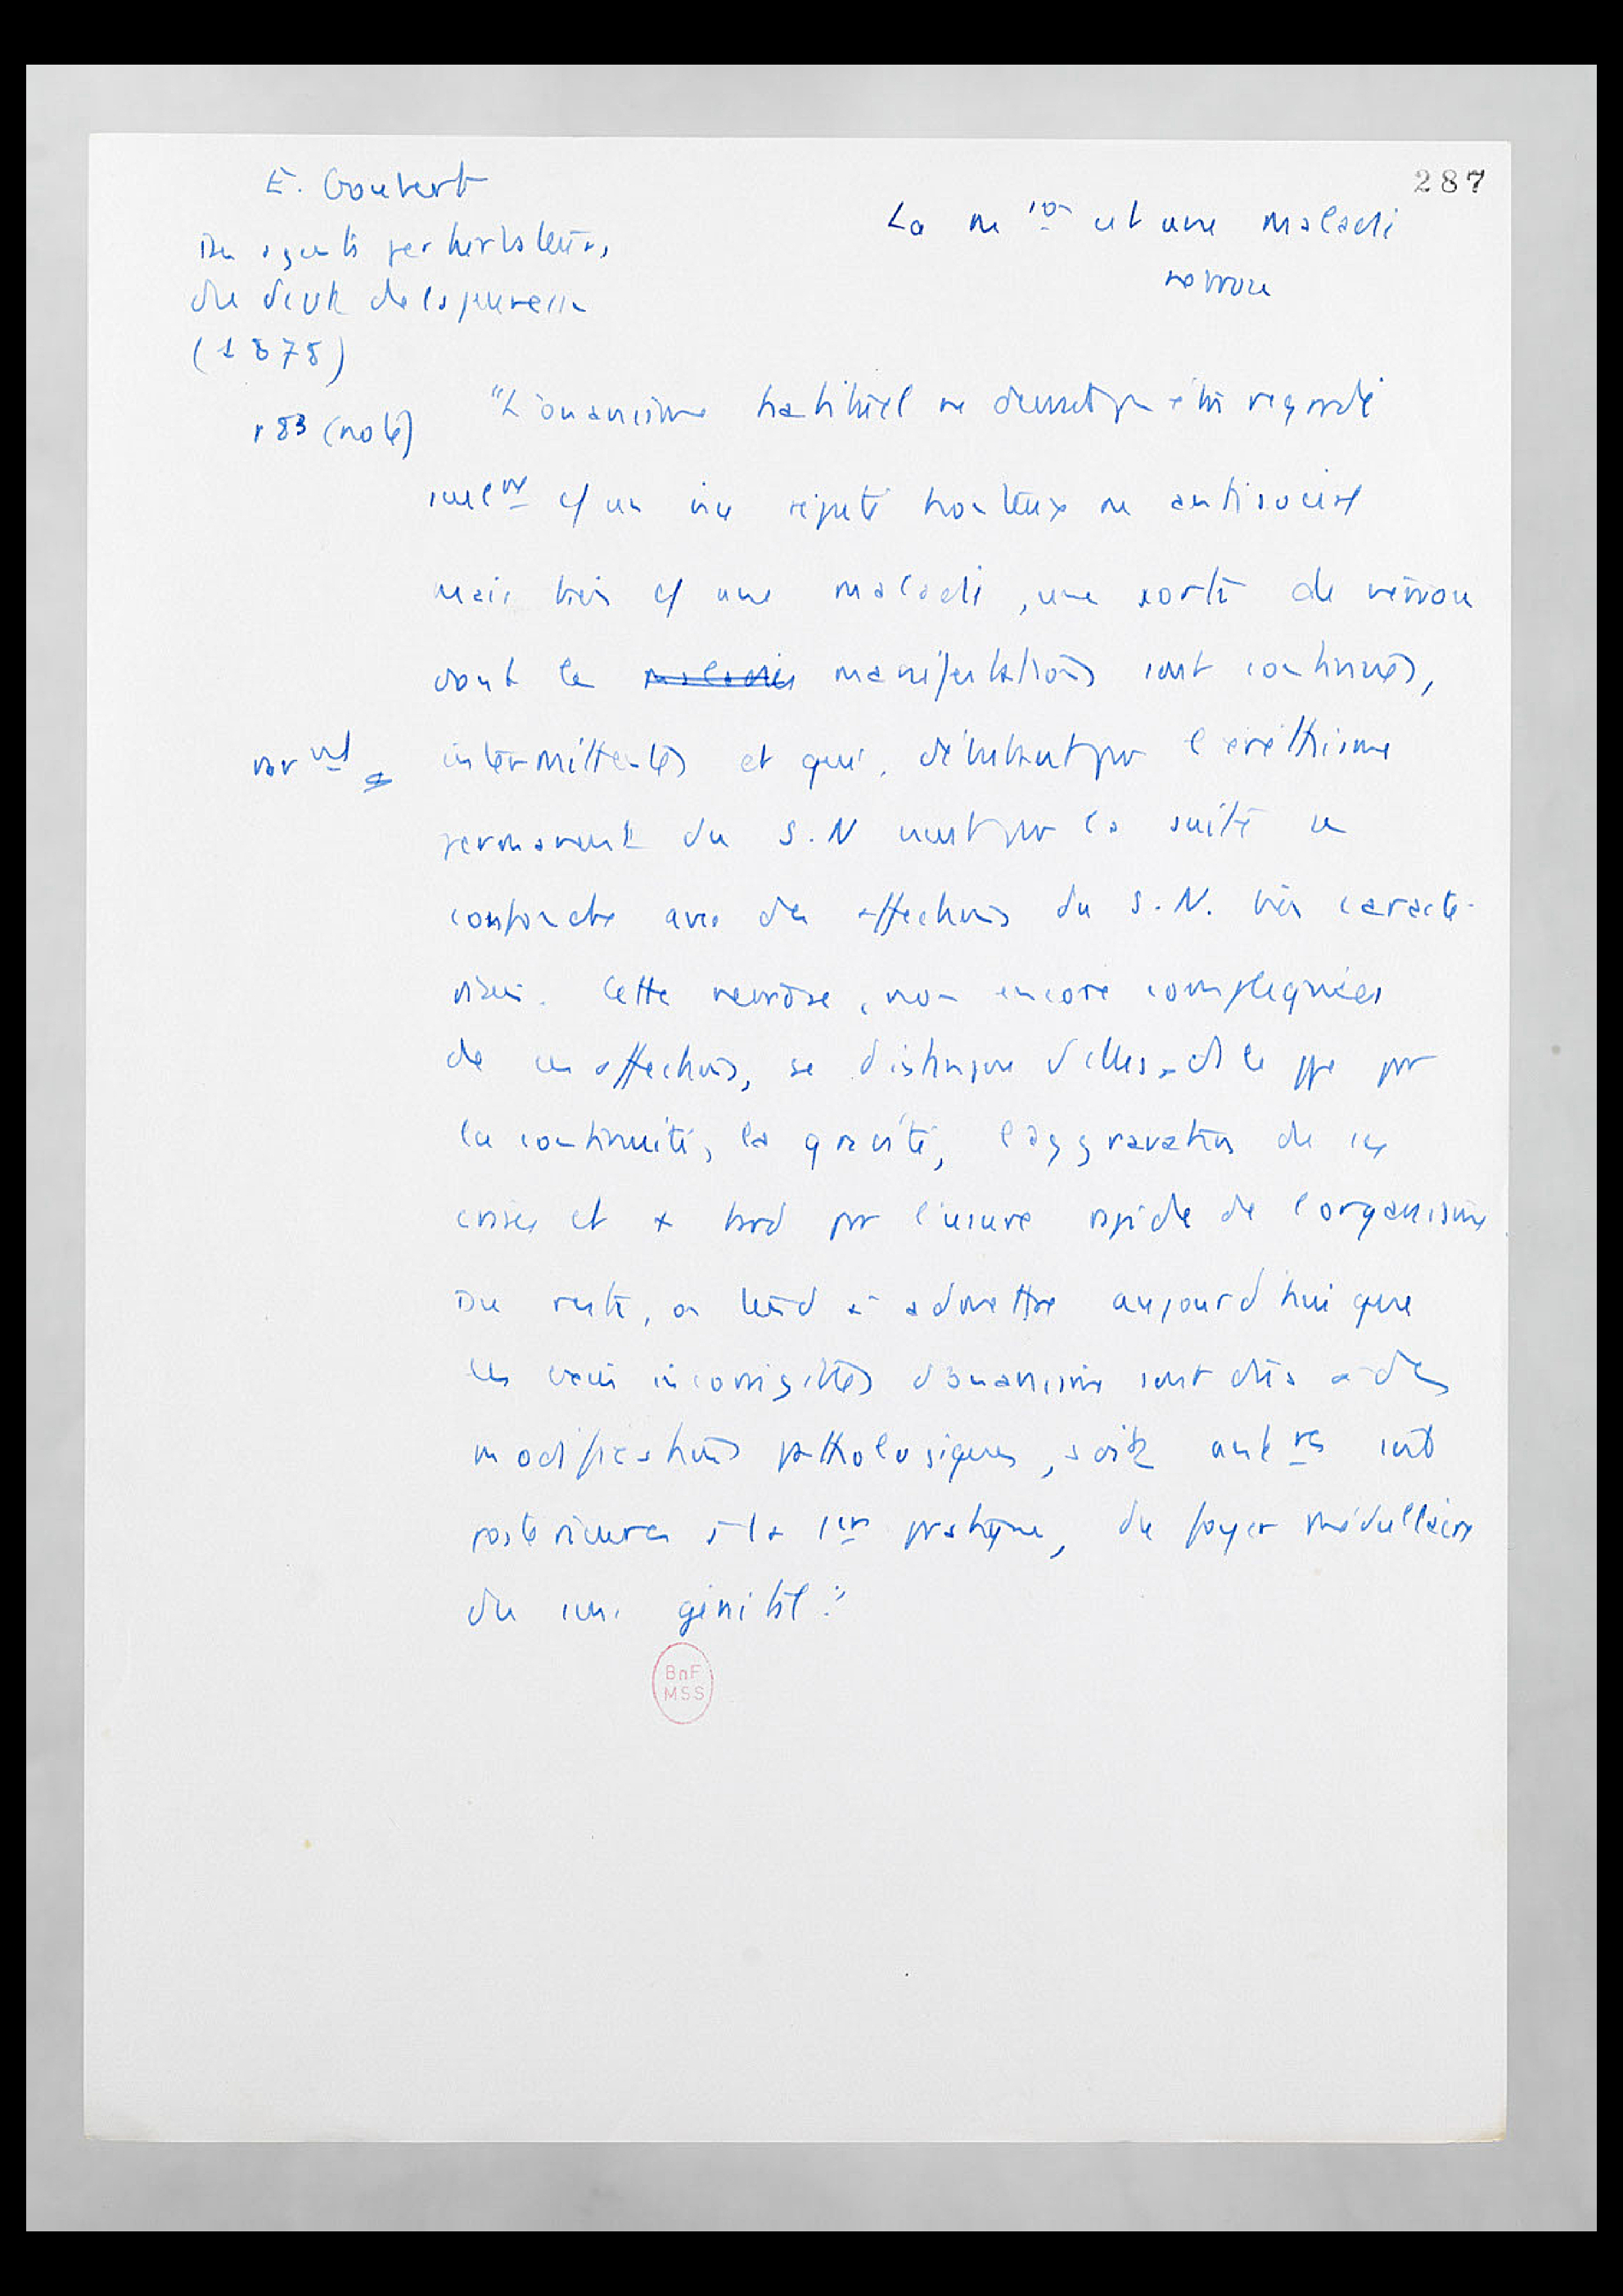 287
E. Goubert
Des agents perturbateurs
du seuil de la jeunesse
(1878)
La m ion est une maladie
nerveuse
p 83 (note)
"L'onanisme habituel ne devrait pas être regardé
seul nt cf un vice réputé honteux ou antisocial
mais bien cf une maladie, une sorte de névrose
dont les maladies manifestations sont continues,
intermittentes et qui, débutant par l'éréthisme
permanent du S.N vient par la suite se
confondre avec des affections du S.N. bien caracté-
risées. Cette névrose, non encore compliquées
de ces affections, se distingue d'elles, ds le ppe par
la continuité, la gravité, l'aggravation de ses
crises et + tard par l'usure rapide de l'organisme.
Du reste, on tend à admettre aujourd'hui que
les vrais incorrigibles d'onanisme sont dûs à des
modifications pathologiques, soit ant res soit
postérieures à la 1ère pratique, du foyer médullaire
du sens génital."
BnF
MSS